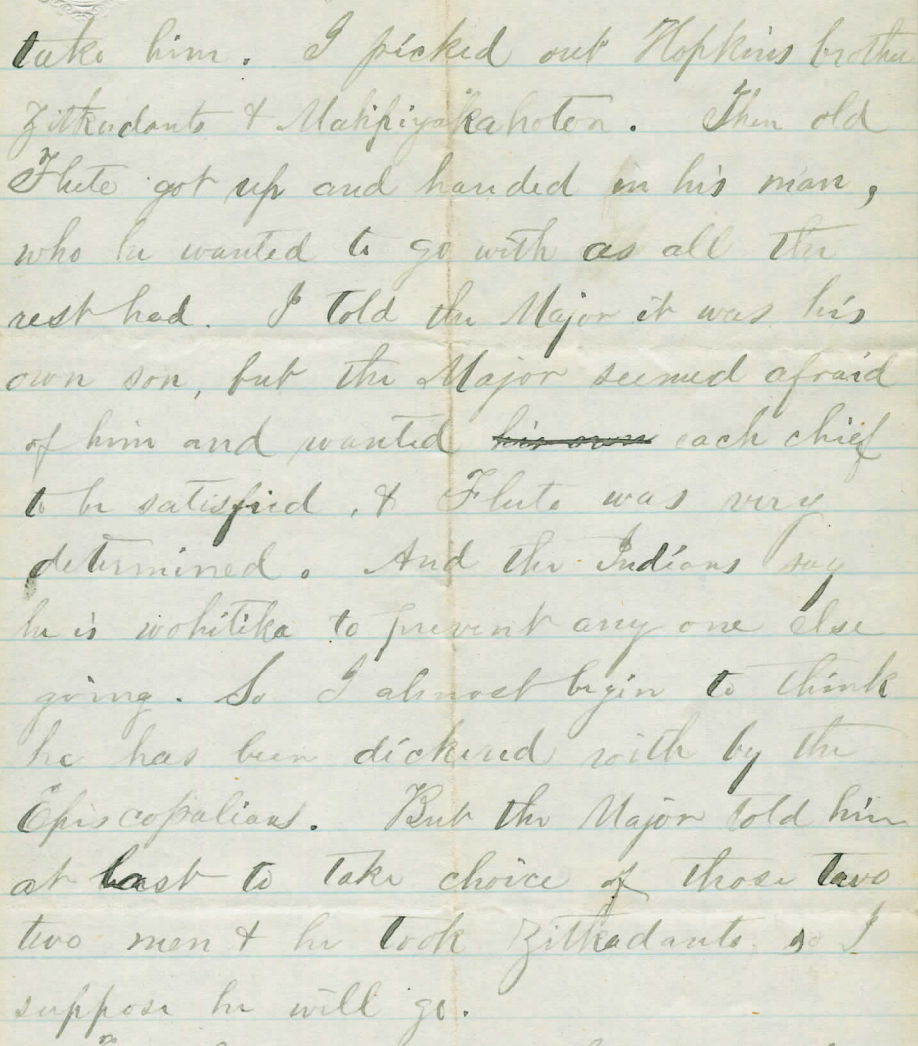 take him. I picked out Hopkins brother
Zitkadanto & Mahpiyakahoton. Then old
Flute got up and handed in his man,
who he wanted to go with as all the
rest had. I told the Major it was his
own son, but the Major seemed afraid
of him and wanted his own each chief
to be satisfied, & Flute was very
determined. And the Indians say
he is wohitika to prevent any one else
going. So I almost begin to think
he has been dickered with by the
Episcopalians. But the Major told him
at last to take choice of those two
two men & he took Zitkadanto so I
suppose he will go.